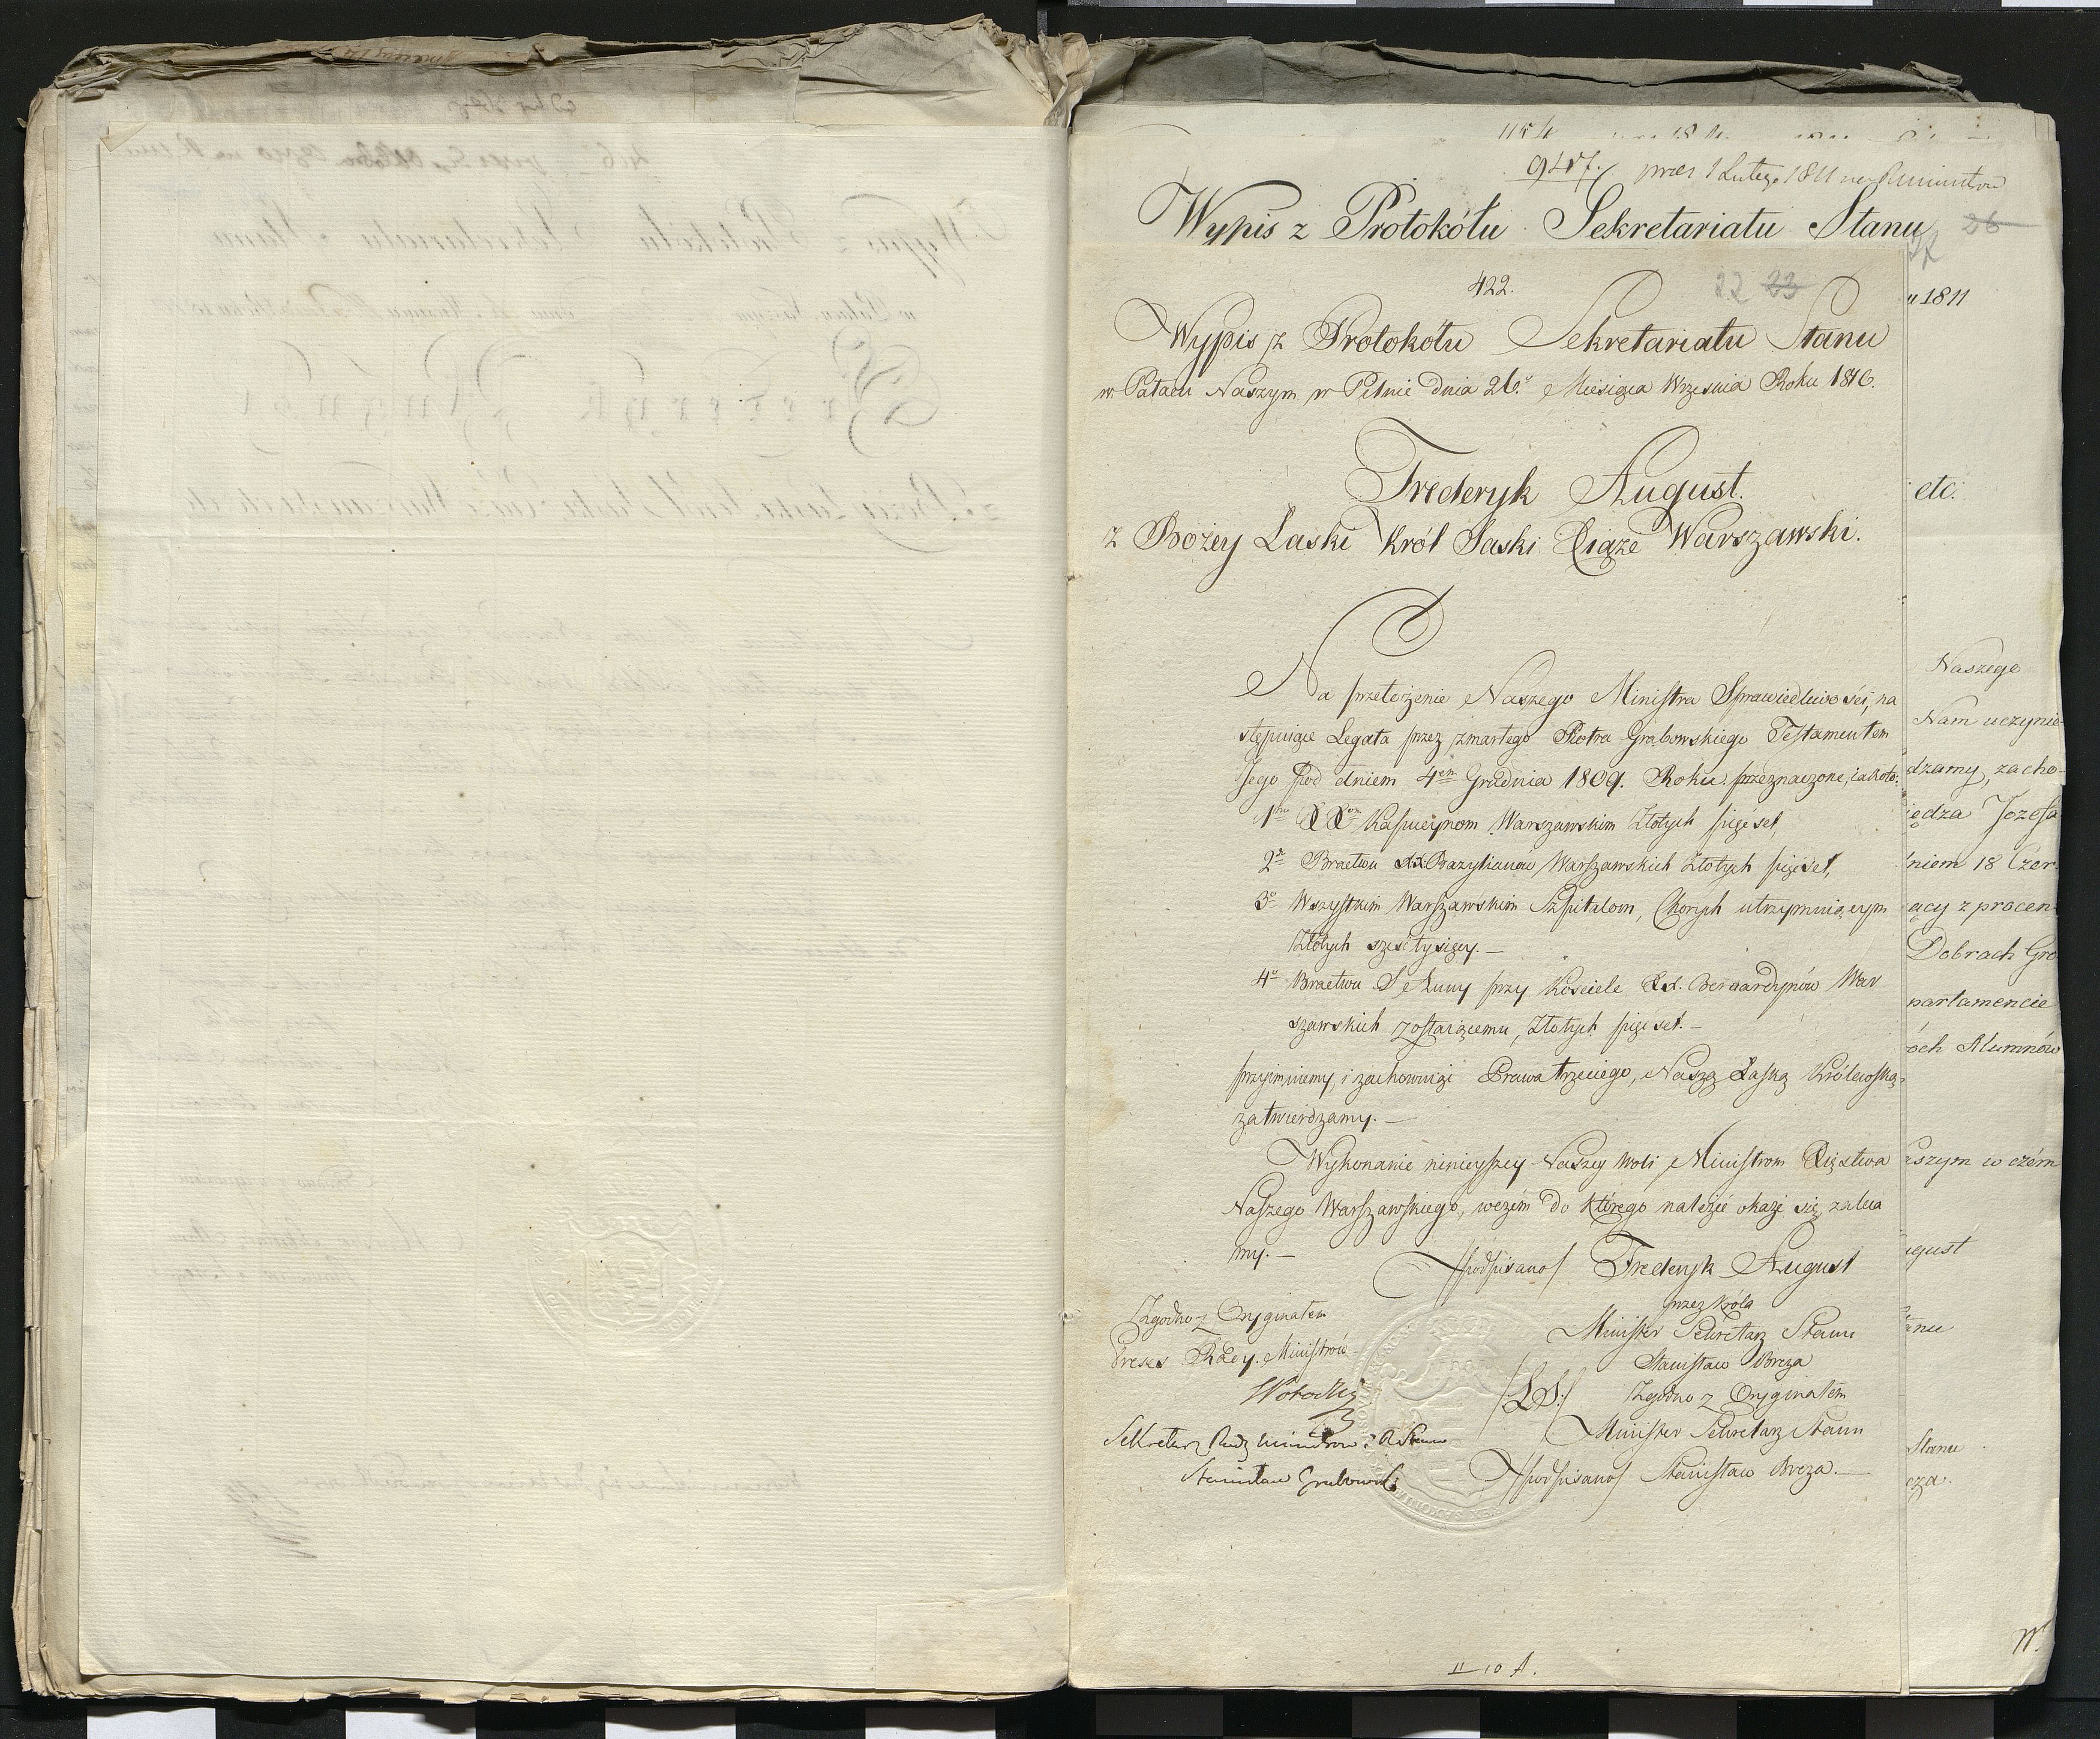 1154
947. prez 1 Lutego 1811
Wypis z Protokółu Sekretariatu Stanu
26
422.
22 23
Wypis z Protokółu Sekretariatu Stanu
w Pałacu Naszym w Pilnic dnia 26.° Miesiąca Września Roku 1810.
Frederyk August.
z Bożey Łaski Król Saski Xiąże Warszawski.
Na przełożenie Naszego Ministra Sprawiedliwości, na
stępuiące Legata przez zmarłego Piotra Grabowskiego Testamentem
Jego pod dniem 4em Grudnia 1809. Roku przeznaczone, iakoto:
1mo XXom Kapucynom Warszawskim Złotych pięćset,
2o Bractwu XX Bazylianów Warszawskich Złotych pięćset,
3o Wszystkim Warszawskim Szpitalom, Chorych utrzymuiącym
Złotych sześć tysięcy. —
4o Bractwu S Anny przy Kościele XX. Bernardynów War
szawskich zostaiącemu, Złotych pięćset. —
przyimuiemy, i zachowuiąc Prawa trzeciego, Naszą Łaską Królewską
zatwierdzamy. —
Wykonanie ninieyszey Naszey woli, Ministrom Xięstwa
Naszego Warszawskiego, wczém do którego należeć okaże się, zaleca
my. —
/podpisano/ Frederyk August
przez Króla
Minister Sekretarz Stanu
Stanisław Breza
/LS:/ Zgodno z Oryginałem
Minister Sekretarz Stanu
/podpisano/ Stanisław Breza. —
Zgodno z Oryginałem
Prezes Rady Ministrów
Sekretarz Rady Ministrów i R Stanu
Stanisław Grabowski
11 10 A.
u 1811
etc.
Naszego
Nam uczynie
dzamy, zacho-
iędza Jozefa
niem 18 Czer
ący z procen
Dobrach Gro
partamencie
óch Alumnów
aszym w czém
ugust
anu
Stanu
eza.